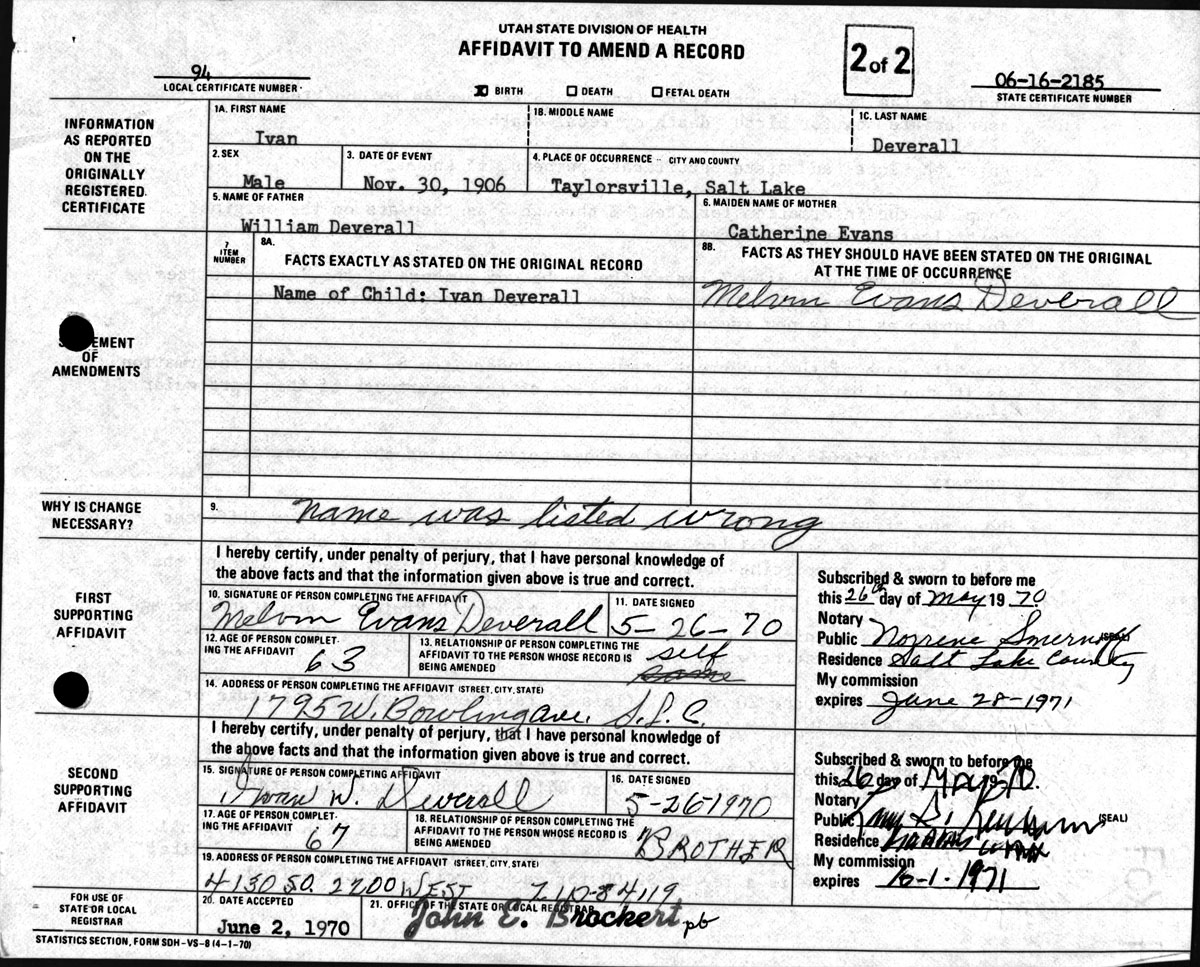 UTAH STATE DIVISION OF HEALTH
AFFIDAVIT TO AMEND A RECORD
2 of 2
94
LOCAL CERTIFICATE NUMBER
BIRTH DEATH FETAL DEATH
06-16-2185
STATE CERTIFICATE NUMBER
INFORMATION AS REPORTED ON THE ORIGINALLY REGISTERED CERTIFICATE
1A. FIRST NAME 1B. MIDDLE NAME 1C. LAST NAME
Ivan Deverall
2. SEX 3. DATE OF EVENT 4. PLACE OF OCCURRENCE -- CITY AND COUNTY
Male Nov. 30, 1906 Taylorsville, Salt Lake
5. NAME OF FATHER 6. MAIDEN NAME OF MOTHER
William Deverall Catherine Evans
7 ITEM NUMBER
8A. FACTS EXACTLY AS STATED ON THE ORIGINAL RECORD
8B. FACTS AS THEY SHOULD HAVE BEEN STATED ON THE ORIGINAL
AT THE TIME OF OCCURRENCE
Name of Child: Ivan Deverall Melvin Evans Deverall
EMENT
OF
AMENDMENTS
WHY IS CHANGE
NECESSARY?
9. name was listed wrong
FIRST
SUPPORTING
AFFIDAVIT
I hereby certify, under penalty of perjury, that I have personal knowledge of
the above facts and that the information given above is true and correct.
10. SIGNATURE OF PERSON COMPLETING THE AFFIDAVIT 11. DATE SIGNED
Melvin Evans Deverall 5-26-70
12. AGE OF PERSON COMPLET-
ING THE AFFIDAVIT 63
13. RELATIONSHIP OF PERSON COMPLETING THE
AFFIDAVIT TO THE PERSON WHOSE RECORD IS
BEING AMENDED
self
same
14. ADDRESS OF PERSON COMPLETING THE AFFIDAVIT (STREET, CITY, STATE)
1795 W. Bowling ave. S.L.C.
Subscribed & sworn to before me
this 26th day of May 19 70
Notary
Public Norrene (SEAL)
Residence Salt Lake County
My commission
expires June 28-1971
SECOND
SUPPORTING
AFFIDAVIT
I hereby certify, under penalty of perjury, that I have personal knowledge of
the above facts and that the information given above is true and correct.
15. SIGNATURE OF PERSON COMPLETING AFFIDAVIT 16. DATE SIGNED
W. Deverall 5-26-1970
17. AGE OF PERSON COMPLET-
ING THE AFFIDAVIT 67
18. RELATIONSHIP OF PERSON COMPLETING THE
AFFIDAVIT TO THE PERSON WHOSE RECORD IS
BEING AMENDED
BROTHER
19. ADDRESS OF PERSON COMPLETING THE AFFIDAVIT (STREET, CITY, STATE)
4130 SO. 2200 WEST ZIP-84119
Subscribed & sworn to before me
this 26 day of May 1970.
Notary
Public (SEAL)
Residence
My commission
expires 10-1-1971
FOR USE OF
STATE OR LOCAL
REGISTRAR
20. DATE ACCEPTED 21. OFFICE OF THE STATE OR LOCAL REGISTRAR
June 2, 1970 John E. Brockert pb
STATISTICS SECTION, FORM SDH-VS-8 (4-1-70)